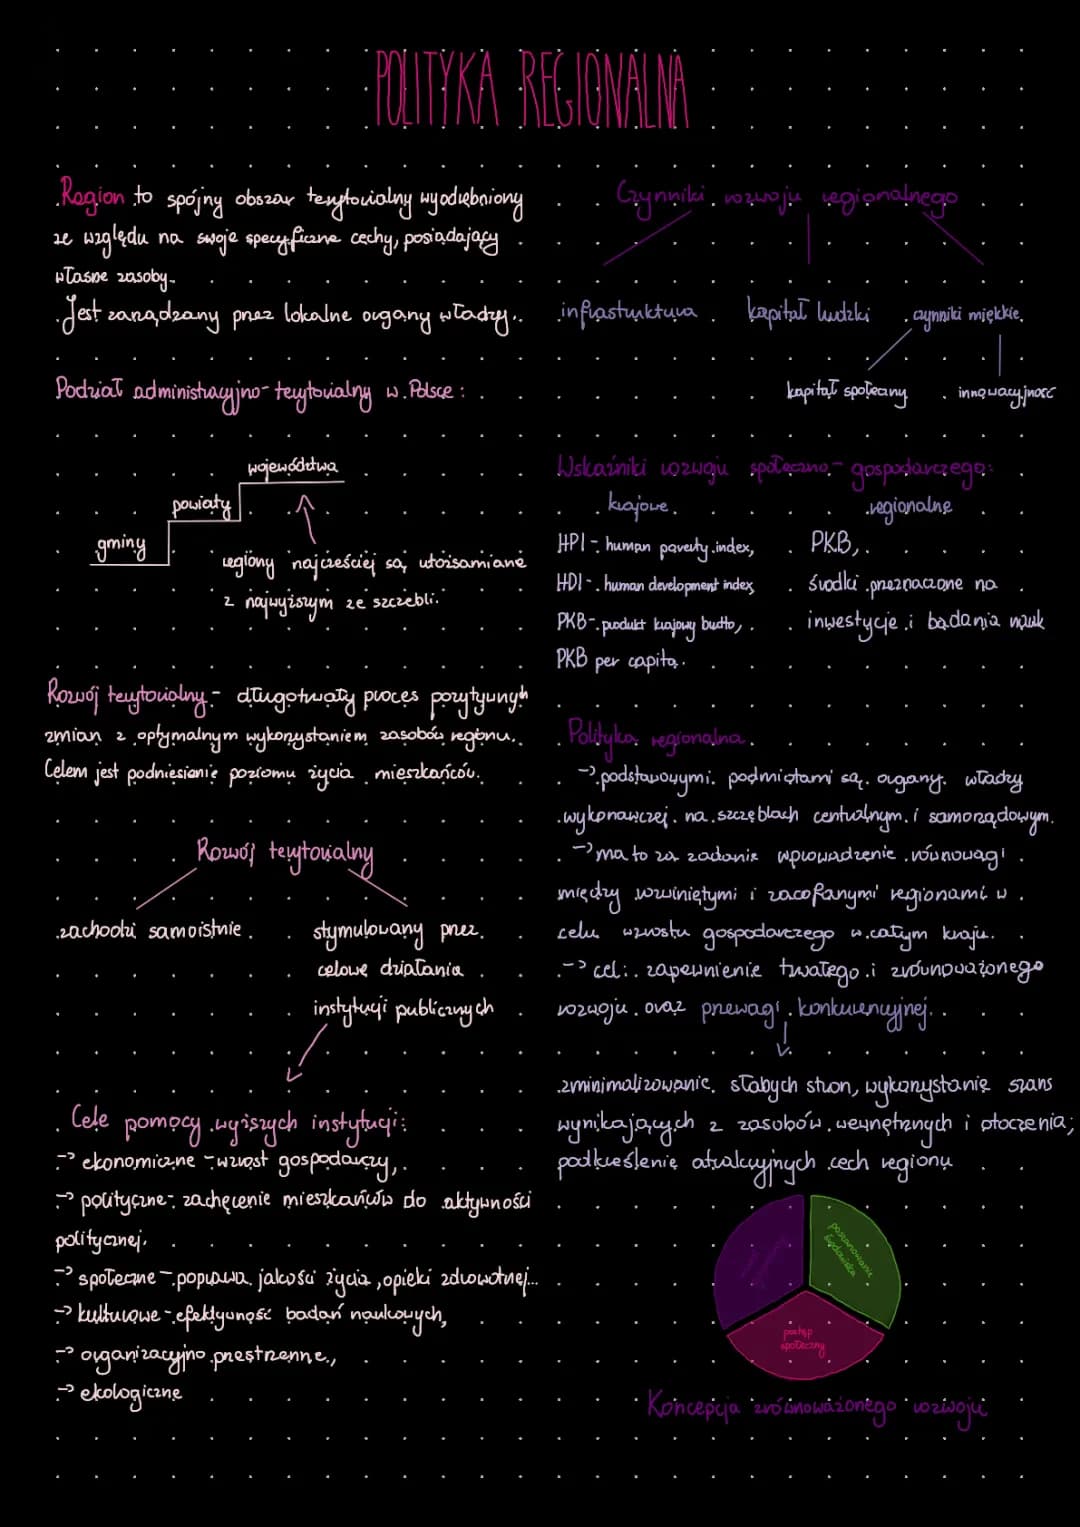 POLITYKA REGIONALNA
Region to spójny obszar terytorialny wyodrębniony
ze względu na swoje specyficzne cechy, posiadający
własne zasoby.
Jest zarządzany przez lokalne organy władzy.
Podział administracyjno-terytorialny w Polsce:
województwa
powiaty
gminy
regiony najcześciej są utożsamiane
z najwyższym ze szczebli.
Rozwój terytorialny - długotrwały proces pozytywnych
zmian z optymalnym wykorzystaniem zasobów regionu.
Celem jest podniesienie poziomu życia mieszkańców.
Rozwój terytorialny
zachodzi samoistnie
stymulowany przez
celowe działania
instytucji publicznych
Cele pomocy wyższych instytucji:
-> ekonomiczne - wzrost gospodarczy,
-> polityczne - zachęcenie mieszkańców do aktywności
politycznej,
-> społeczne - poprawa jakości życia, opieki zdrowotnej...
-> kulturowe - efektywność badań naukowych,
-> organizacyjno przestrzenne,
-> ekologiczne
Czynniki rozwoju regionalnego
infrastruktura kapitał ludzki czynniki miękkie
kapitał społeczny innowacyjność
Wskaźniki rozwoju społeczno-gospodarczego:
krajowe regionalne
HPI - human poverty index,
HDI - human development index,
PKB - produkt krajowy brutto,
PKB per capita.
PKB,
środki przeznaczone na
inwestycje i badania nauk
Polityka regionalna
-> podstawowymi podmiotami są organy władzy
wykonawczej na szczeblach centralnym i samorządowym.
-> ma to za zadanie wprowadzenie równowagi
między rozwiniętymi i zacofanymi regionami w
celu wzrostu gospodarczego w całym kraju.
-> cel: zapewnienie trwałego i zrównoważonego
rozwoju oraz przewagi konkurencyjnej.
zminimalizowanie słabych stron, wykorzystanie szans
wynikających z zasobów wewnętrznych i otoczenia;
podkreślenie atrakcyjnych cech regionu
poszanowanie
środowiska
postęp
społeczny
Koncepcja zrównoważonego rozwoju